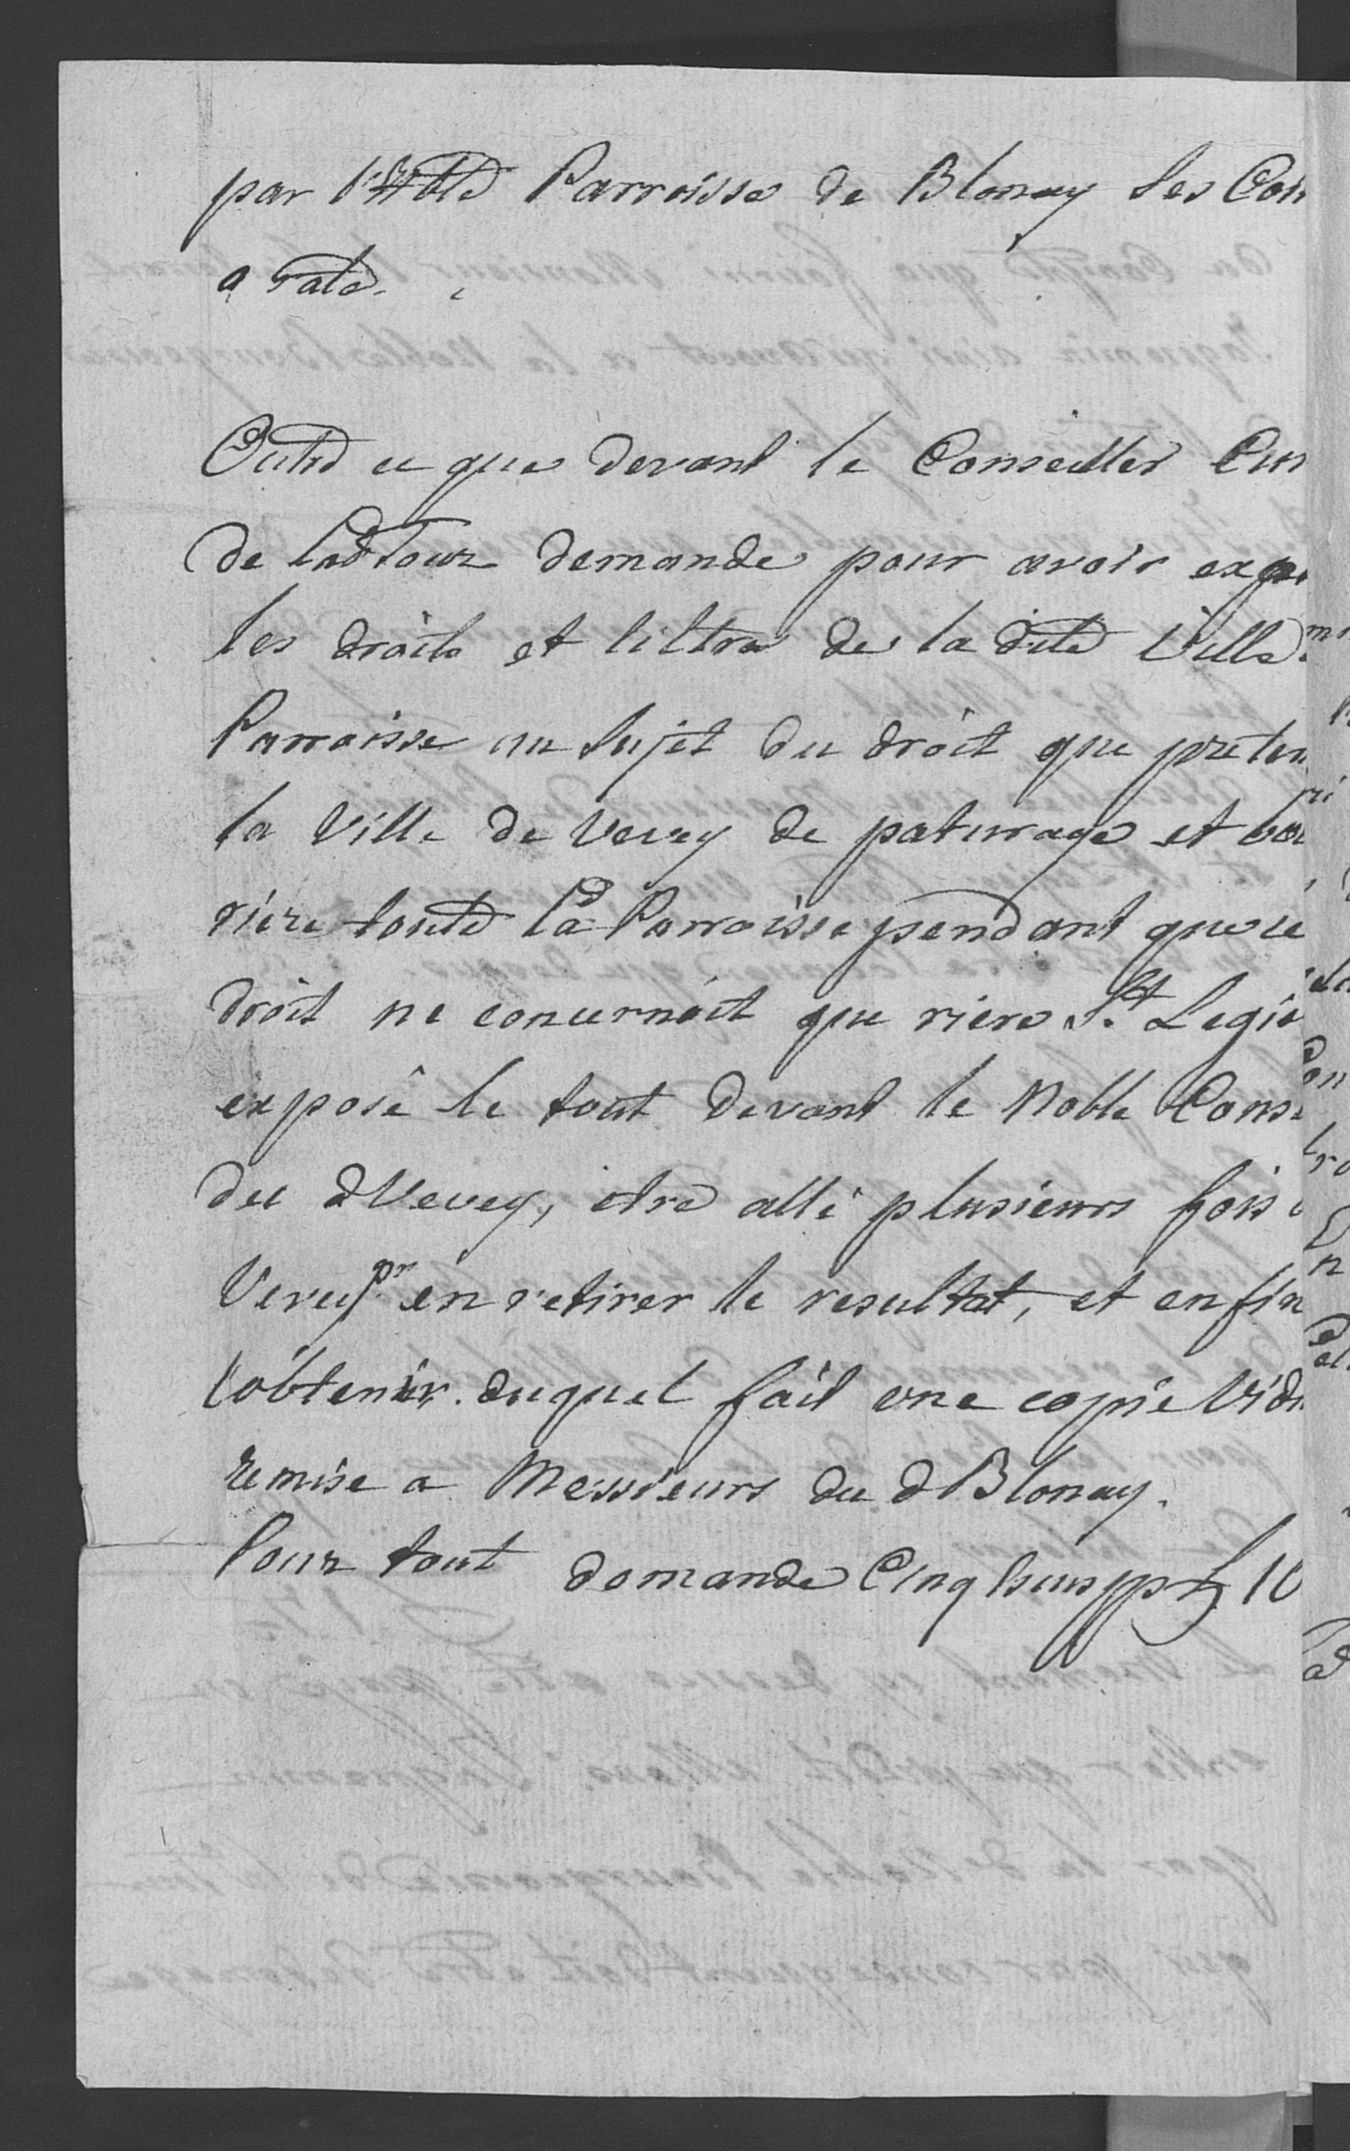 par Parroisse de Blonay les Con
a rate.
Outre ce que devant le Conseiller Cun
de Tour demande pour avoir exp
les droits et tittres de la dite Ville
Parroisse au sujet du droit que preten
la Ville de Vevey de paturage et bo
riere toute la Parroisse pendant que ce
droit ne concernoit que riere St. Legie
exposé le tout devant le Noble Cons
du d Vevey, etre allé plusieurs fois
Vevey pr. en retirer le resultat, et enfin
l'obtenir. duquel fait une copie Vidi
remise a Messieurs du d Blonay.
Pour tout demande Cinq 10